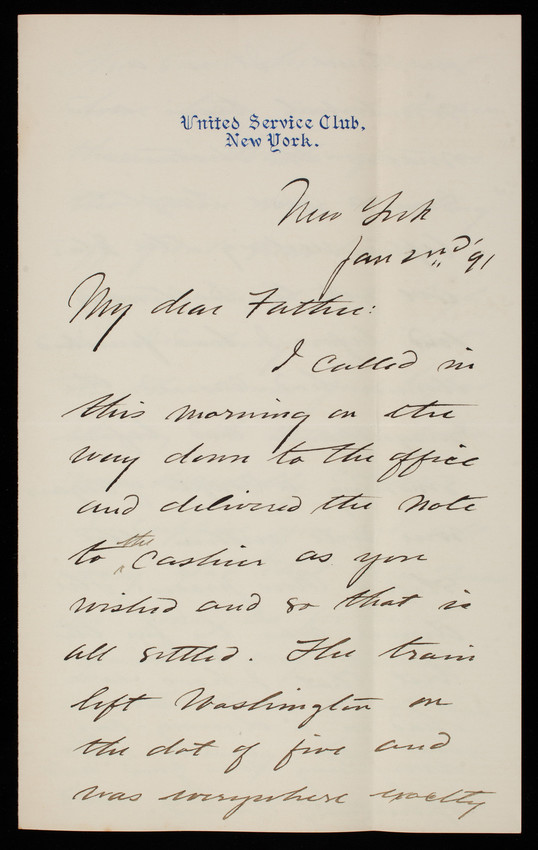 United Service Club,
New York.
New York
Jan 2nd '91
My dear Father:
I called in
this morning on the
way down to the office
and delivered the note
to the cashier as you
wished and so that is
all settled. The train
left Washington on
the dot of five and
was everywhere exactly